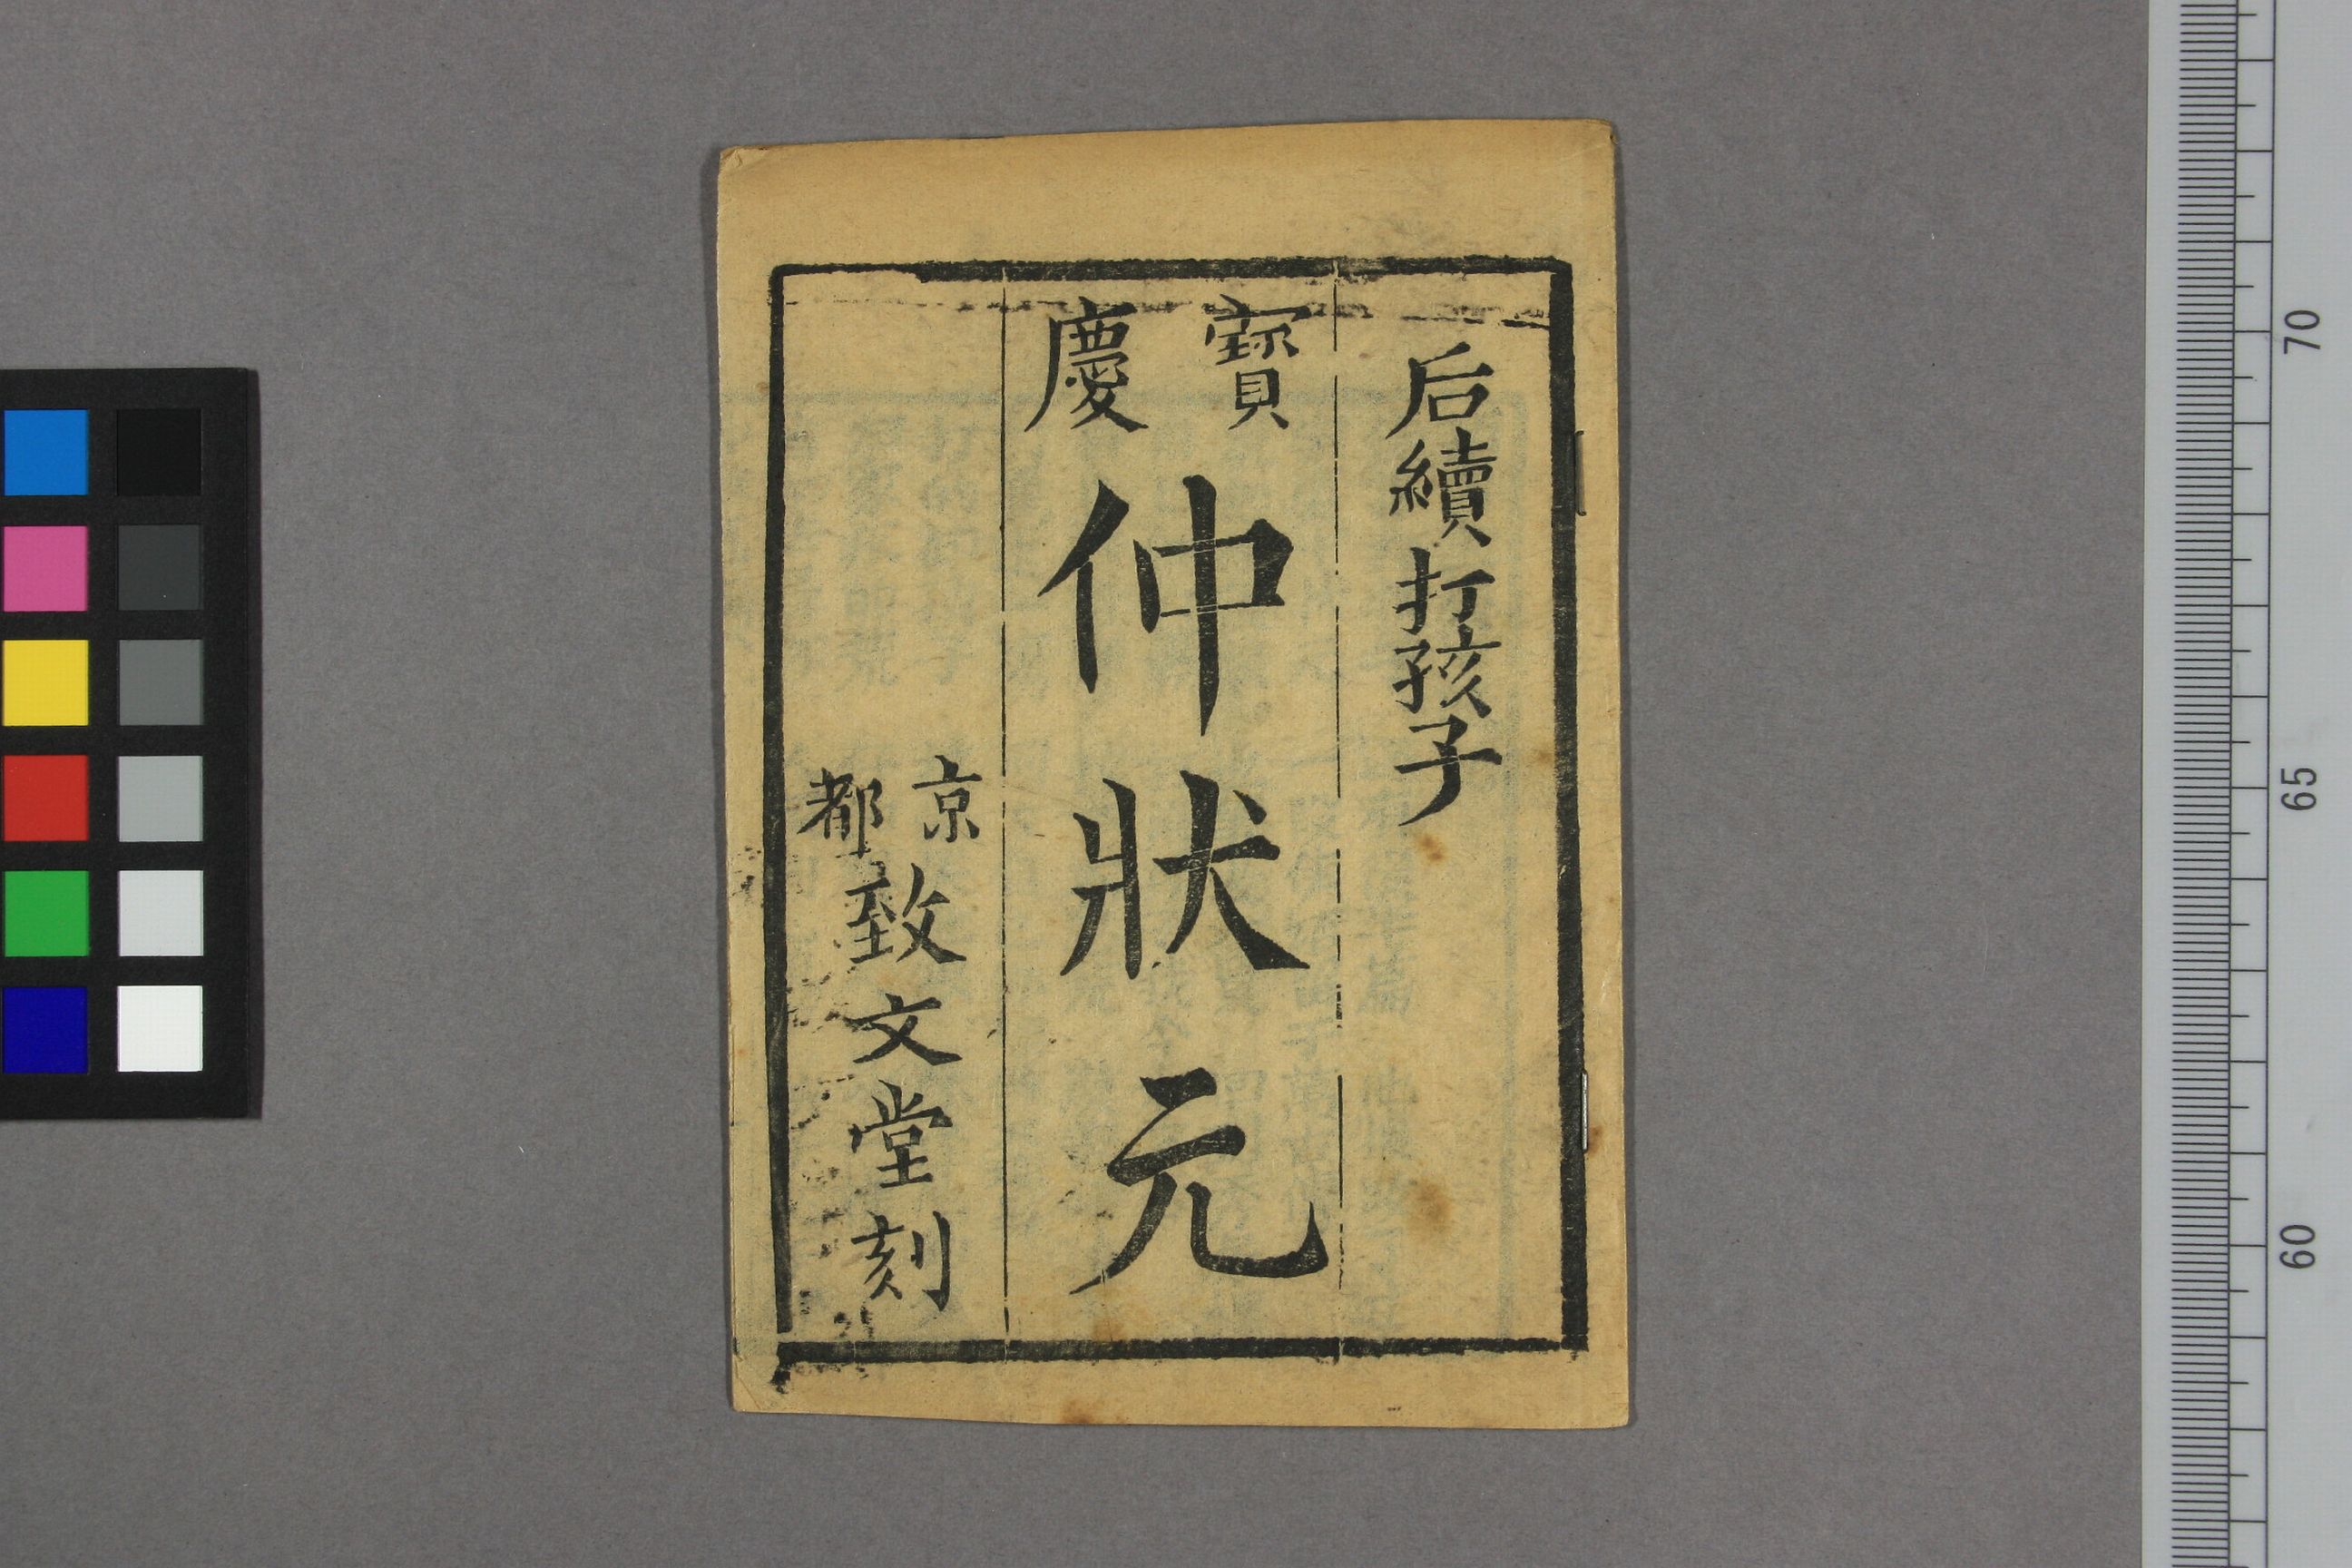 后續打孩子
寳慶
仲狀元
京都
致文堂刻
70
65
60